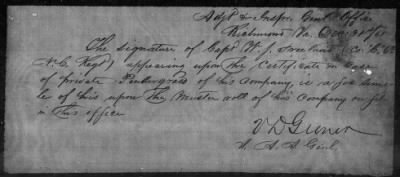 Adjt & Inspr. Genl's Office
Richmond Va. Dec
The signature of Capt W. J.
N.C. Regt) appearing upon the Certificate in case
of private Pendergrass of his Company, is a fac simi-
le of his upon the Muster roll of his Company on file
in this office
A. A. Genl